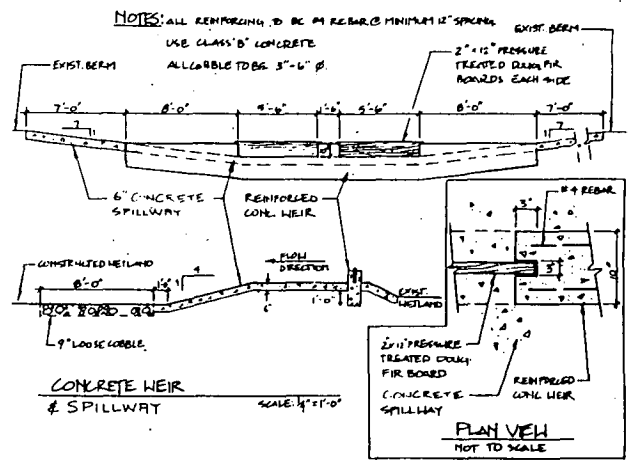 NOTES: ALL REINFORCING TO BE #4 REBAR @ MINIMUM 12" SPACING
USE CLASS "B" CONCRETE
ALL COBBLE TO BE 3"-6" Ø.
EXIST. BERM
EXIST. BERM
2" x 12" PRESSURE
TREATED DOUG. FIR
BOARDS EACH SIDE
7'-0"
8'-0"
5'-6"
1'-6"
5'-6"
8'-0"
7'-0"
7
1
7
6" CONCRETE
SPILLWAY
REINFORCED
CONC. WEIR
CONSTRUCTED WETLAND
8'-0"
1
4
FLOW
DIRECTION
1'-0"
6"
EXIST.
WETLAND
9" LOOSE COBBLE
CONCRETE WEIR
& SPILLWAY
SCALE: 1/4" = 1'-0"
#4 REBAR
3"
3"
10"
2x12 PRESSURE
TREATED DOUG.
FIR BOARD
CONCRETE
SPILLWAY
REINFORCED
CONC. WEIR
PLAN VIEW
NOT TO SCALE